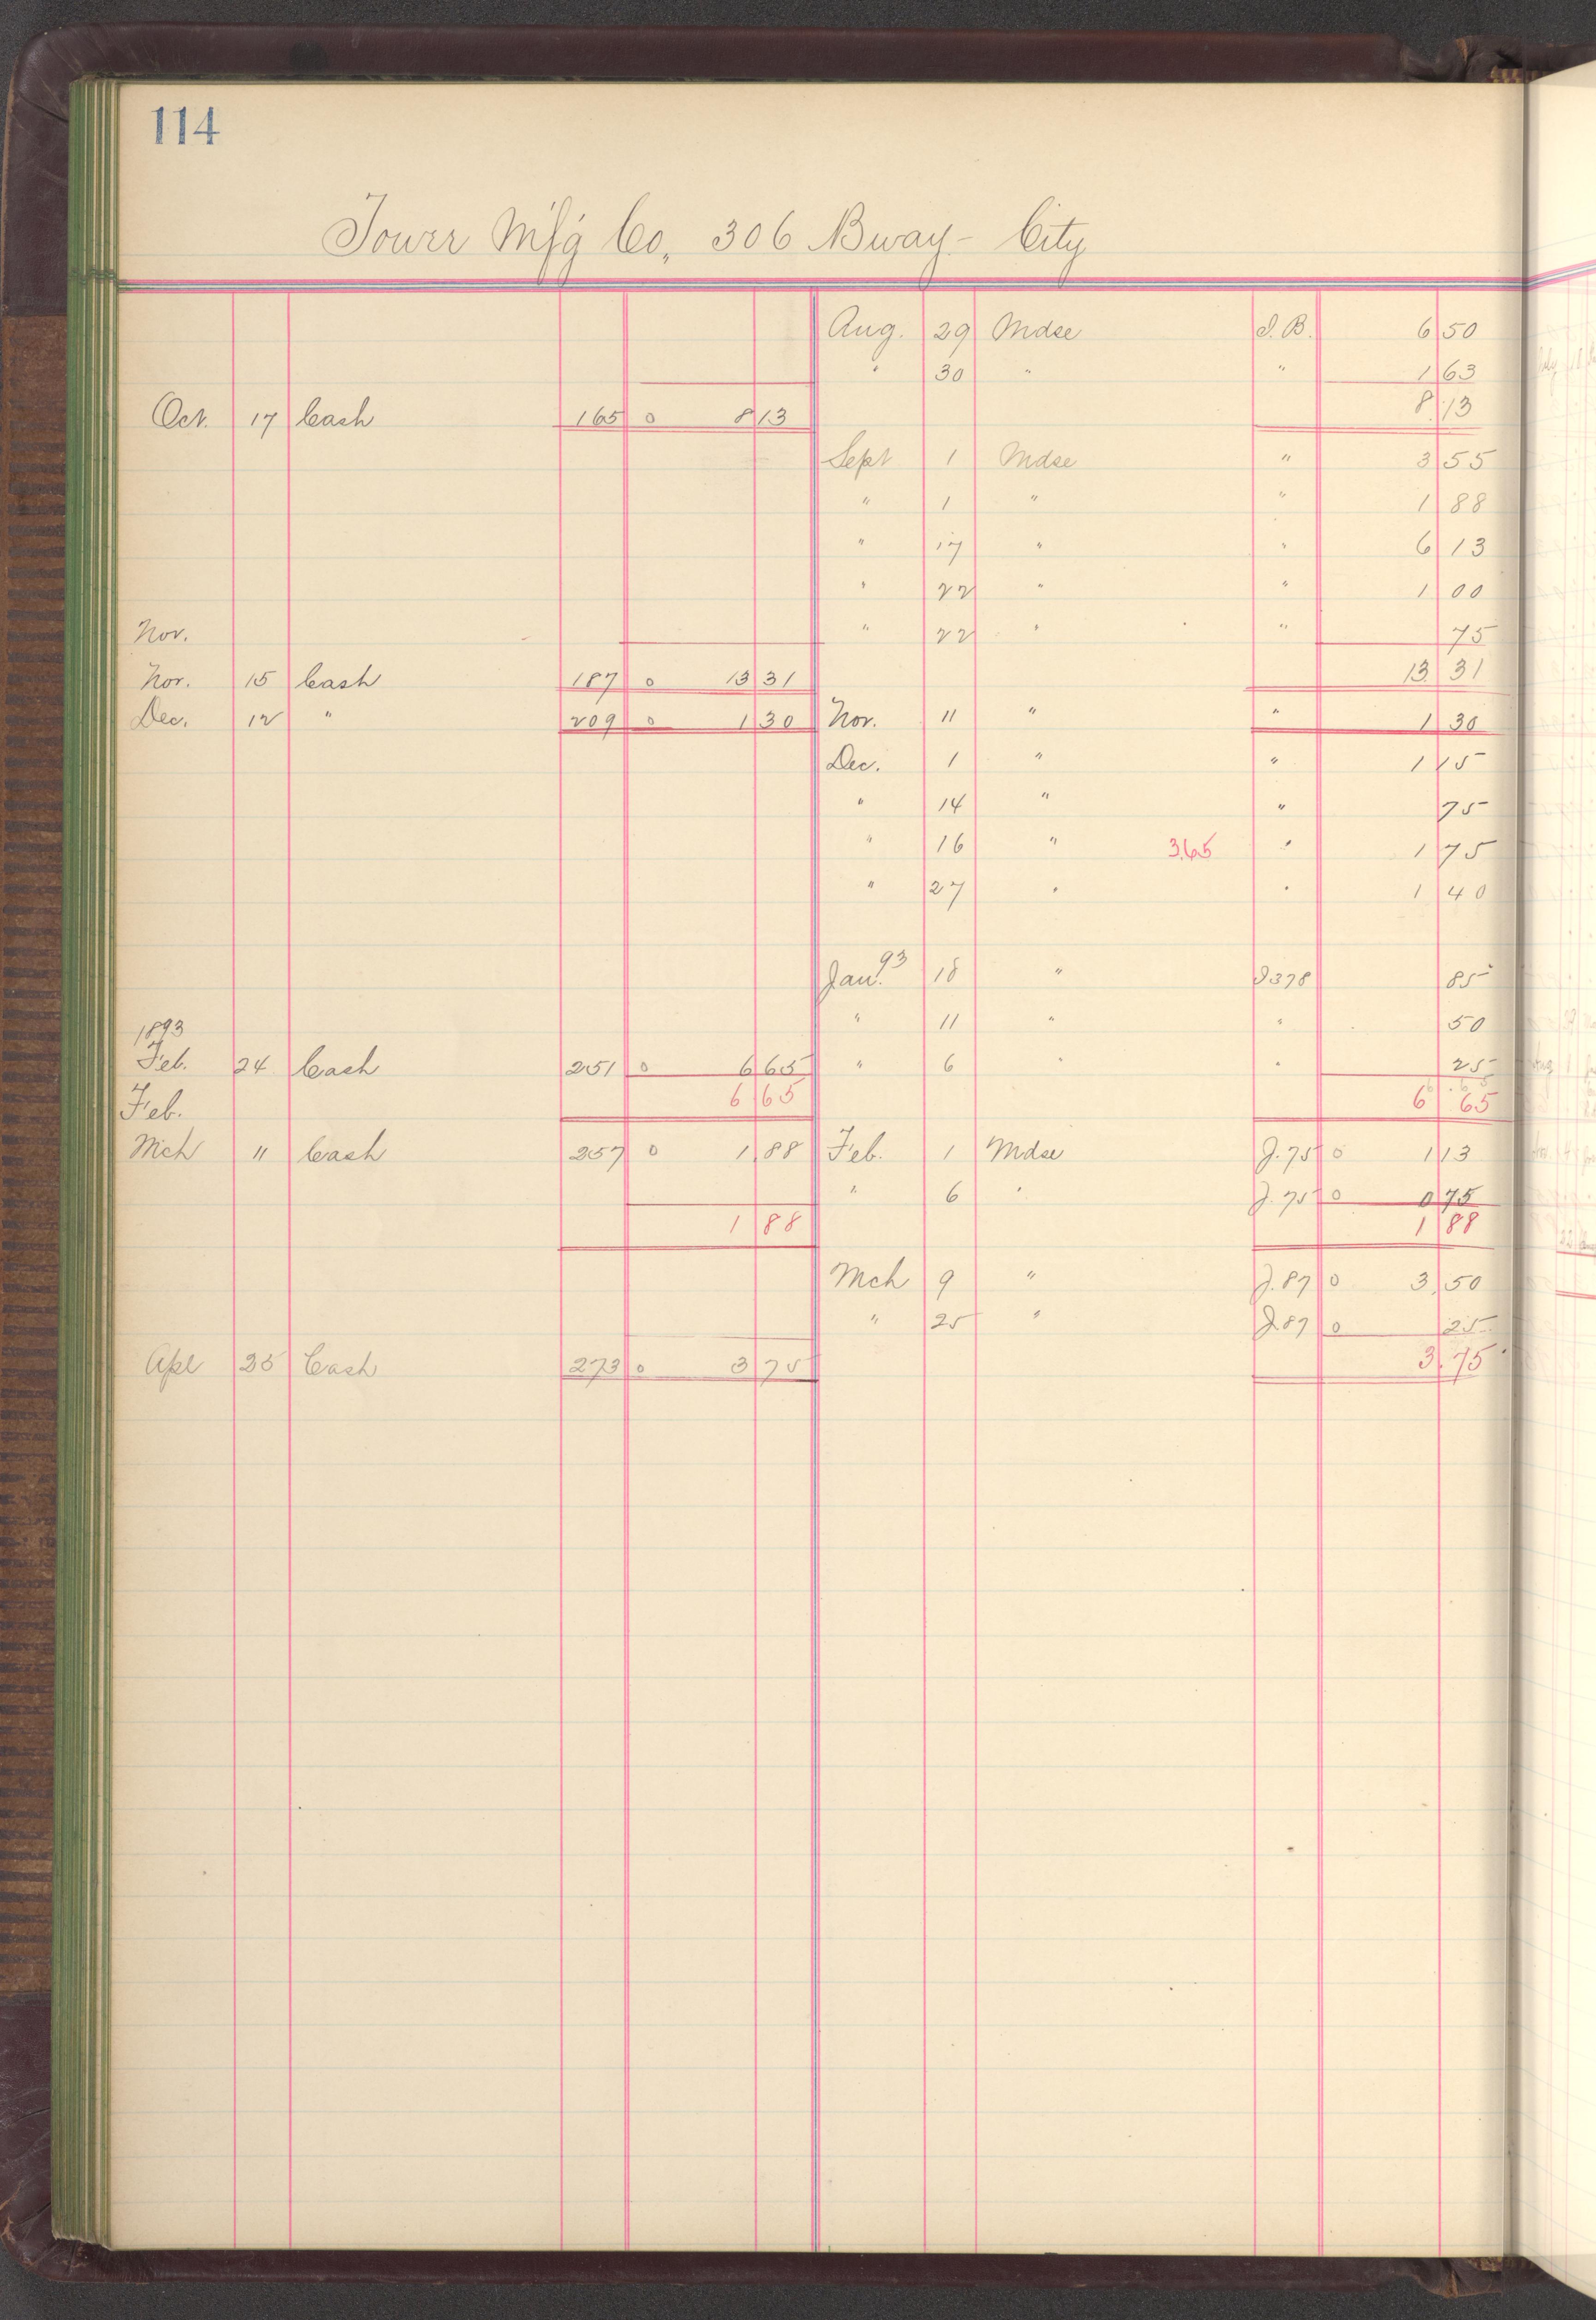 114
Tower M'f'g Co., 306 Bway - City
Aug. 29 Mdse I.B. 6 50
" 30 " " 1 63
Oct. 17 Cash 165 0 8 13 8 13
Sept 1 Mdse " 3 55
" 1 " " 1 88
" 17 " " 6 13
" 22 " " 1 00
Nov. " 22 " " 75
Nov. 15 Cash 187 0 13 31 13 31
Dec. 12 " 209 0 1 30 Nov. 11 " " 1 30
Dec. 1 " " 1 15
" 14 " " 75
" 16 " 3.65 " 1 75
" 27 " " 1 40
Jan. 93 18 " I 378 85
1893 " 11 " " 50
Feb. 24 Cash 251 0 6 65 " 6 " " 25
Feb. 6 65 6 65
Mch 11 Cash 257 0 1 88 Feb. 1 Mdse J. 75 0 1 13
" 6 " J. 75 0 0 75
1 88 1 88
Mch 9 " J. 87 0 3 50
" 25 " J. 87 0 25
Apl 25 Cash 273 0 3 75 3.75